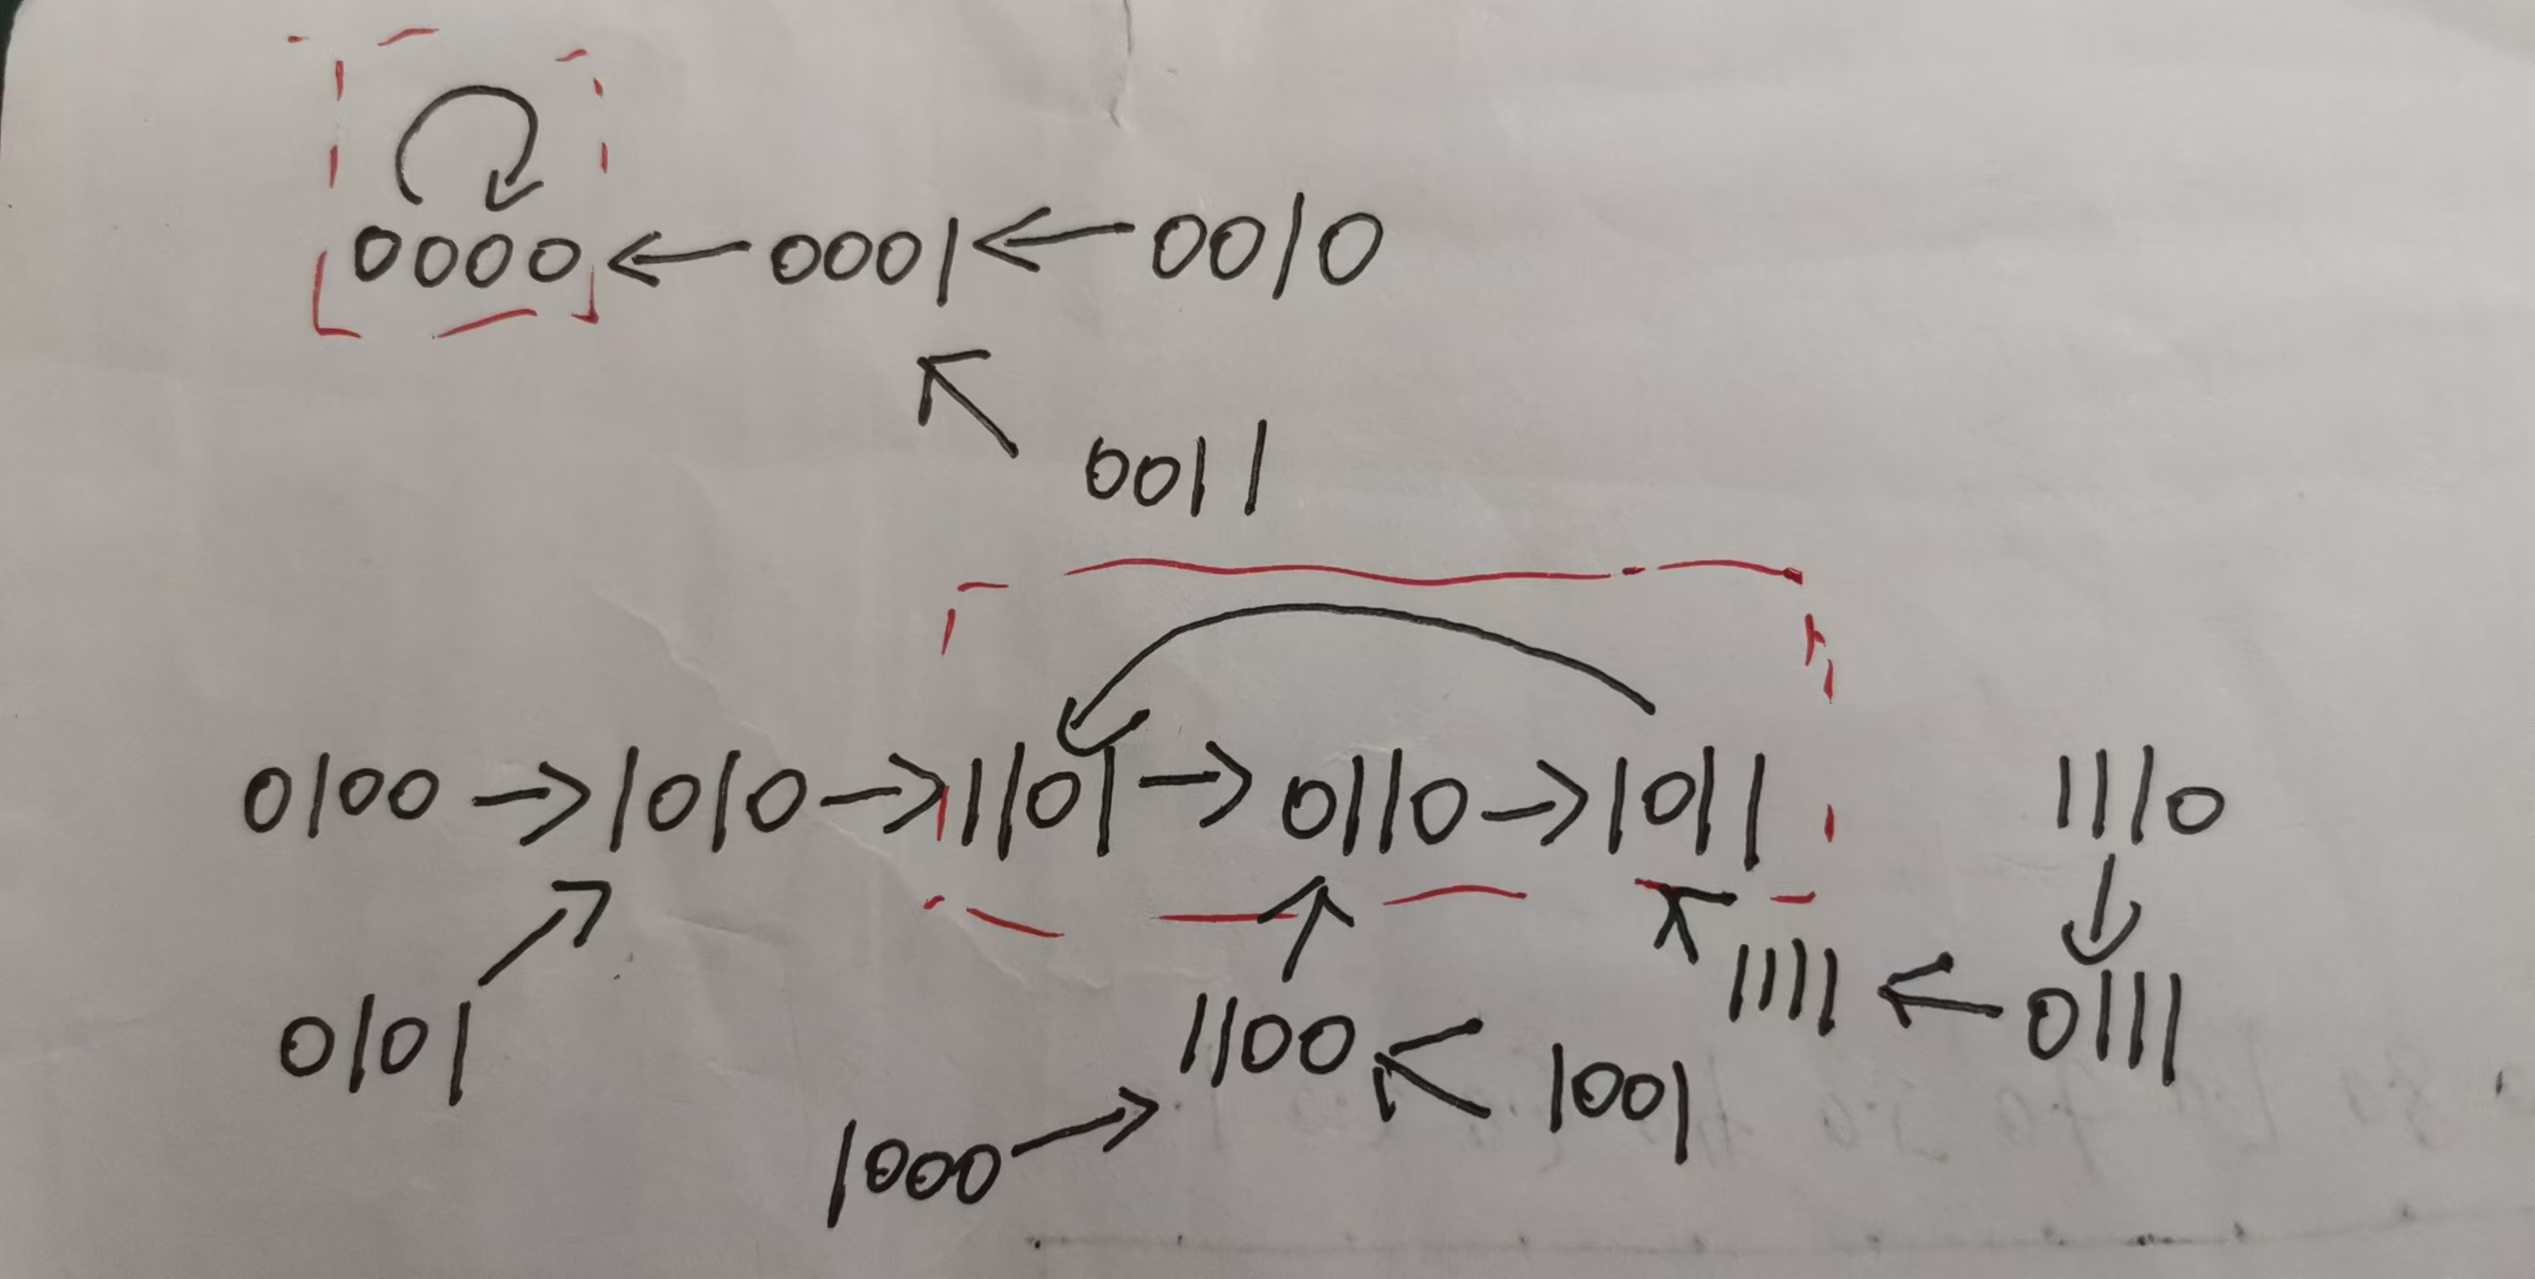 0000 ← 0001 ← 0010
0011
0100 → 1010 → 1101 → 0110 → 1011
1110
1111 ← 0111
0101
1100
1001
1000